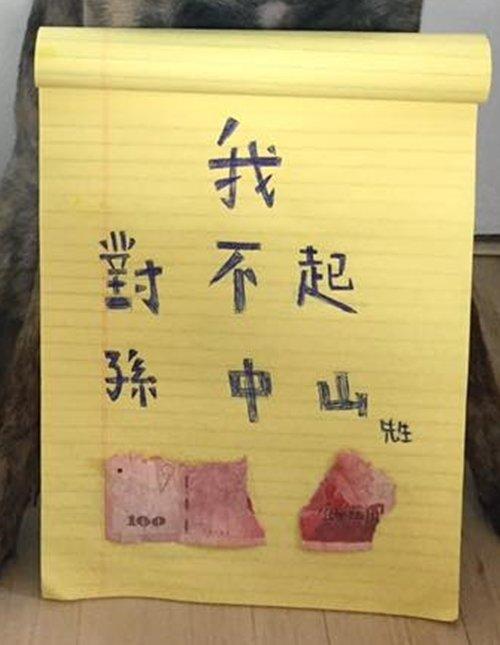 我
對不起
孫中山
先生
100